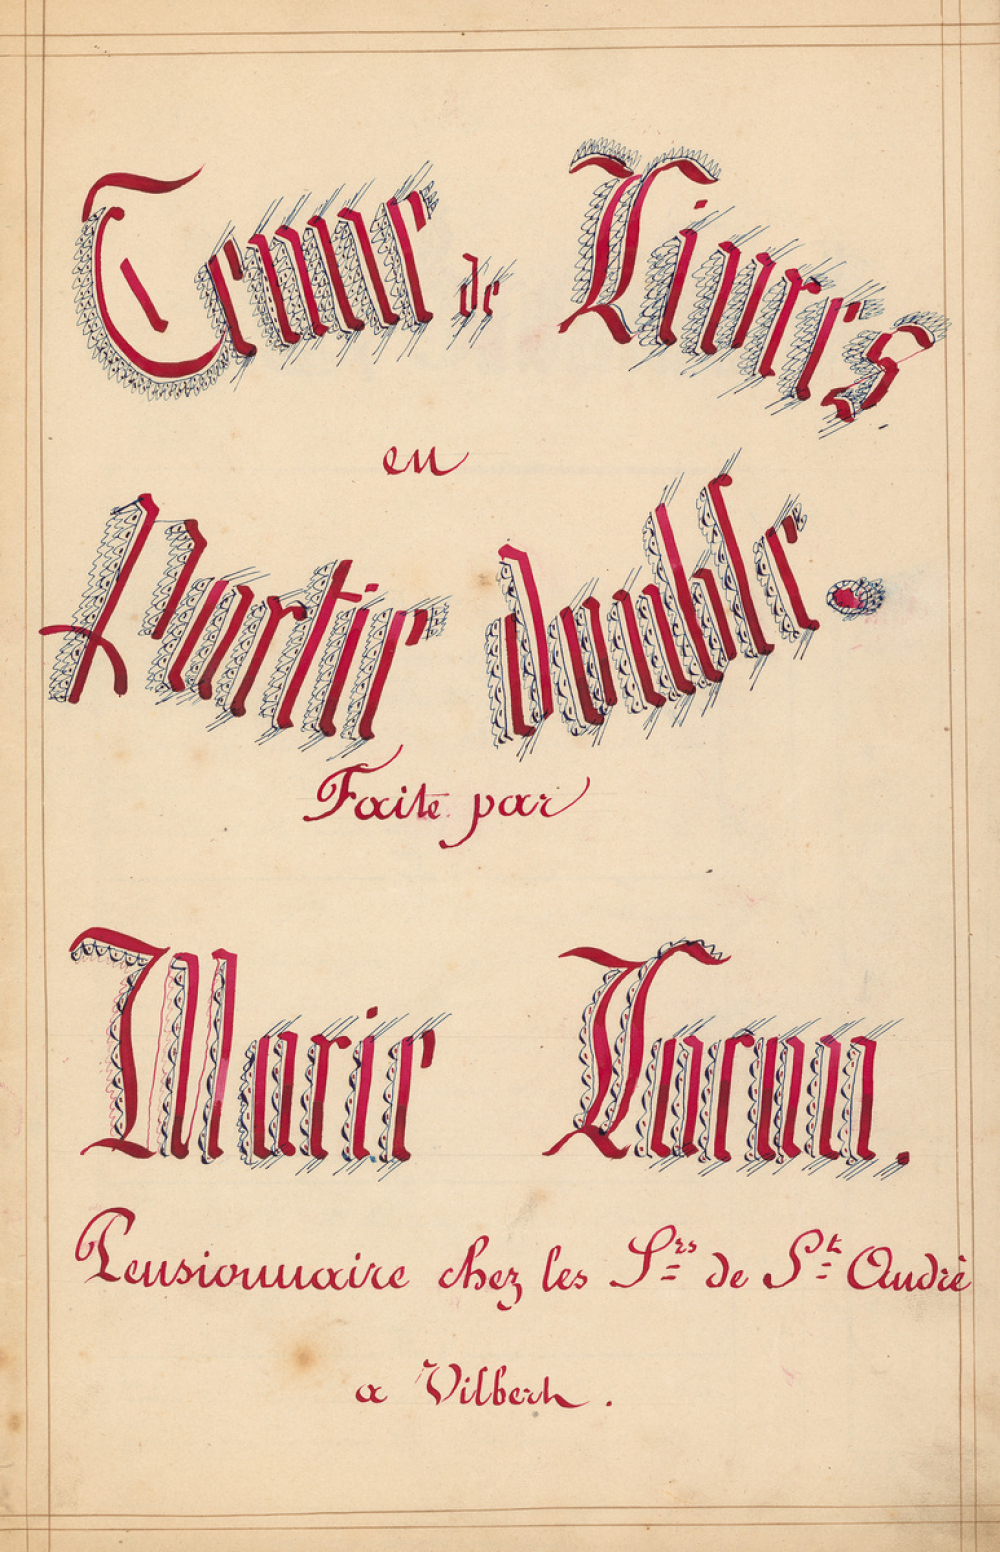 Tenue de Livres
en
Partie double.
Faite par
Marie Lacan.
Pensionnaire chez les Srs de St André
a Vilbert.